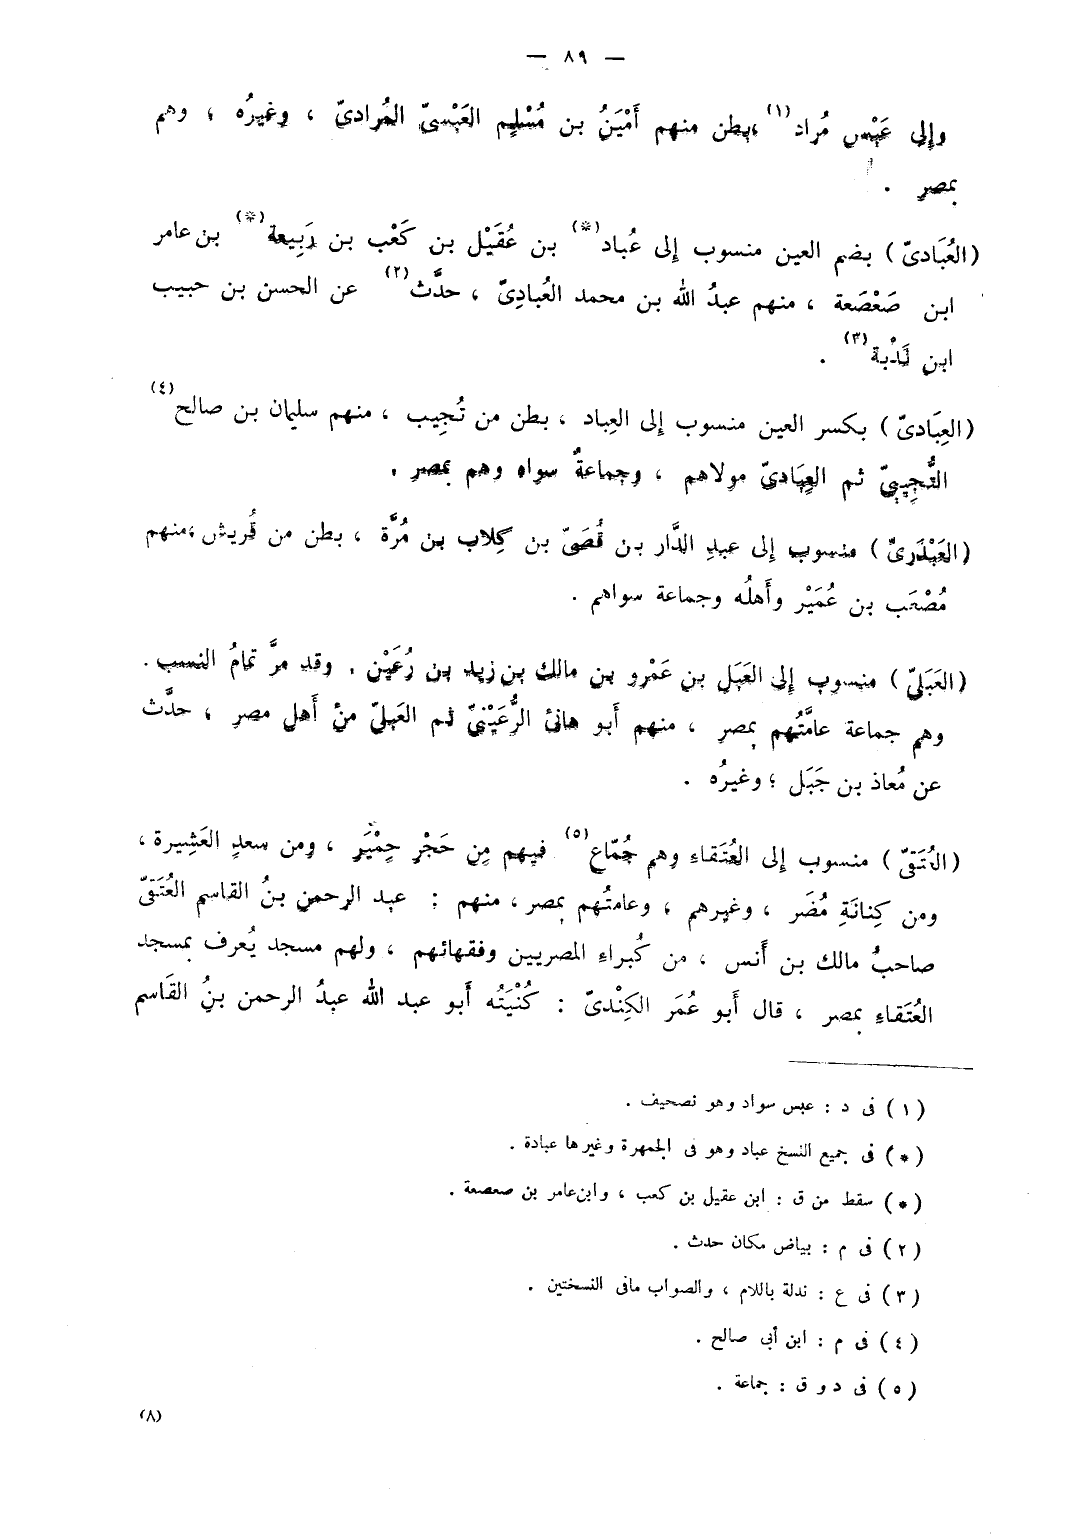 — ٨٩ —
وإلى عَبْس مُراد(١) ،بطن منهم أَمْيَنُ بن مُسْلِم العَبْسىّ المُرادىّ ، وغيرُه ، وهم
بمصر .
(العُبَادىّ) بضم العين منسوب إلى عُباد(*) بن عُقَيْل بن كَعْب بن رَبِيعة(*) بن عامر
ابن صَعْصَعة ، منهم عبدُ الله بن محمد العُبادِىّ ، حدَّث(٢) عن الحسن بن حبيب
ابن نَدْبة(٣) .
(العِبَادىّ) بكسر العين منسوب إلى العِباد ، بطن من تُجِيب ، منهم سليمان بن صالح(٤)
التُّجِيبِىّ ثم العِبَادىّ مولاهم ، وجماعةٌ سواه وهم بمصر .
(العَبْدَرىّ) منسوب إلى عبدِ الدَّار بن قُصَىّ بن كِلاب بن مُرَّة ، بطن من قُريش ،منهم
مُصْعَب بن عُمَيْر وأَهلُه وجماعة سواهم .
(العَبَلىّ) منسوب إلى العَبَل بن عَمْرو بن مالك بن زيد بن رُعَيْن . وقد مرَّ تمامُ النسب .
وهم جماعة عامَّتُهم بمصر ، منهم أَبو هانئ الرُّعَيْنىّ ثم العَبلىّ منْ أَهل مصر ، حدَّث
عن مُعاذ بن جَبَل ؛ وغيرُه .
(العُتَقىّ) منسوب إلى العُتَقاء وهم جُمّاع(٥) فيهم مِن حَجْرِ حِمْيَر ، ومن سعدِ العَشِيرة ،
ومن كِنانَةِ مُضَر ، وغيرهم ، وعامتُهم بمصر ، منهم : عبد الرحمن بنُ القاسم العُتَقىّ
صاحبُ مالك بن أَنس ، من كُبراءِ المصريين وفقهائهم ، ولهم مسجد يُعرف بمسجد
العُتَقاءِ بمصر ، قال أَبو عُمَر الكِنْدىّ : كُنْيَتُه أَبو عبد الله عبدُ الرحمن بنُ القَاسم
(١) فى د : عبس سواد وهو تصحيف .
(*) فى جميع النسخ عباد وهو فى الجمهرة وغيرها عبادة .
(*) سقط من ق : ابن عقيل بن كعب ، وابن عامر بن صعصعة .
(٢) فى م : بياض مكان حدث .
(٣) فى ع : ندلة باللام ، والصواب مافى النسختين .
(٤) فى م : ابن أبى صالح .
(٥) فى د و ق : جماعة .
(٨)